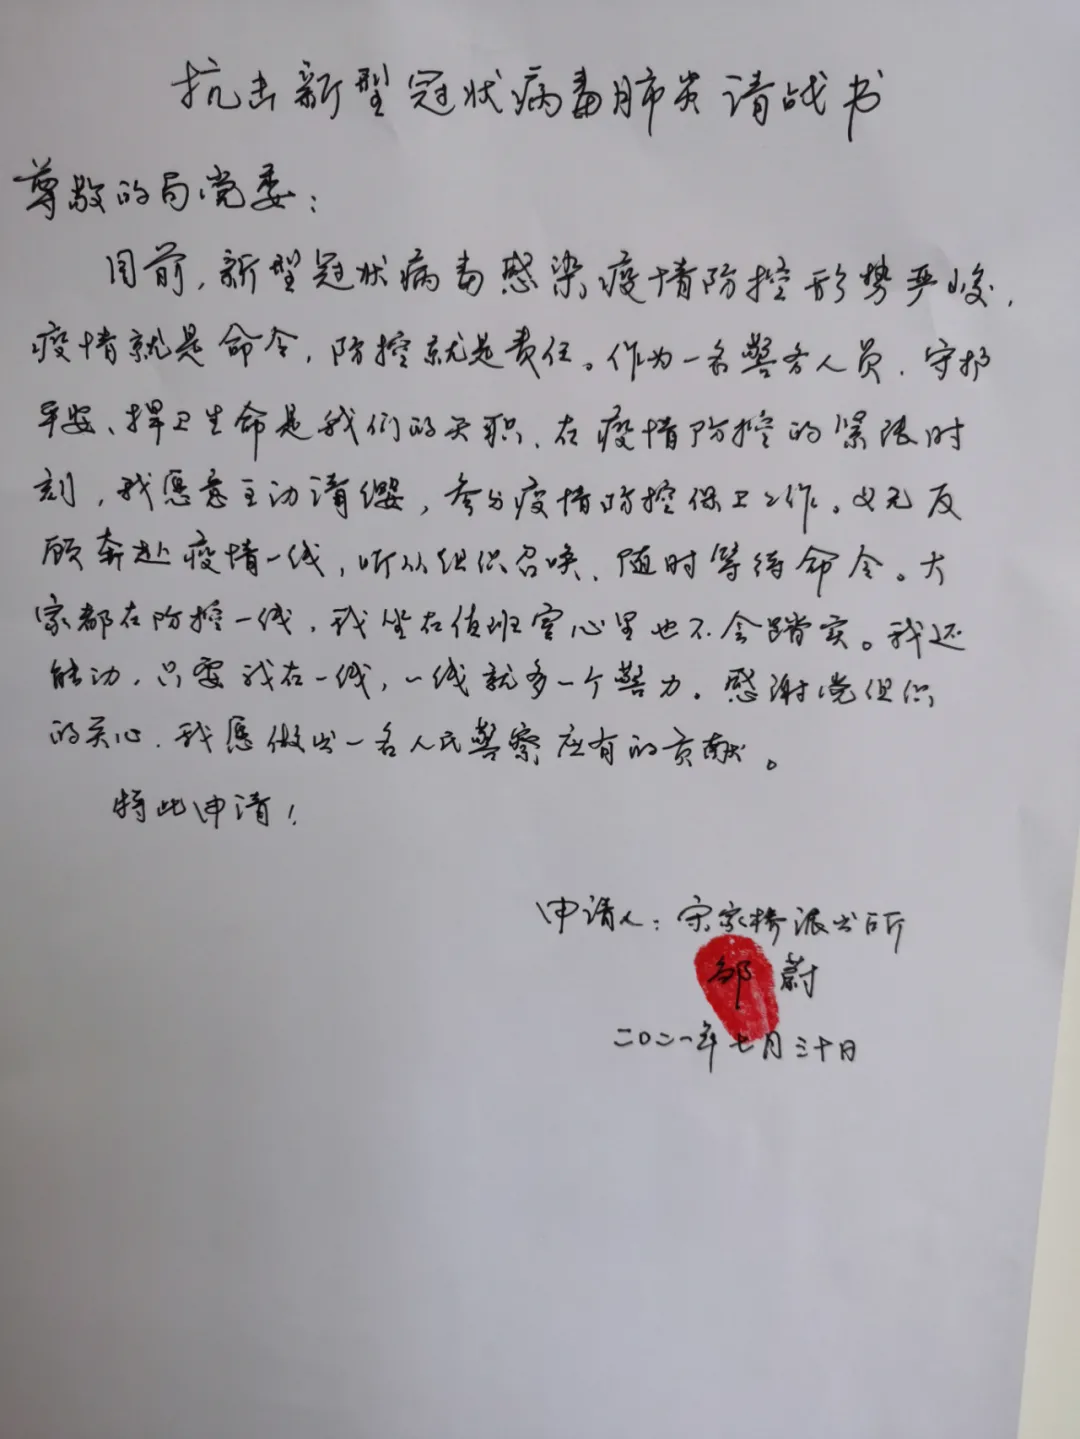 抗击新型冠状病毒肺炎请战书
尊敬的局党委：
目前，新型冠状病毒感染疫情防控形势严峻，
疫情就是命令，防控就是责任。作为一名警务人员，守护
平安、捍卫生命是我们的天职，在疫情防控的紧张时
刻，我愿意主动请缨，参与疫情防控保卫工作。义无反
顾奔赴疫情一线，听从组织召唤，随时等待命令。大
家都在防控一线，我坐在值班室心里也不会踏实。我还
能动，只要我在一线，一线就多一个警力。感谢党组织
的关心，我愿做出一名人民警察应有的贡献。
特此申请！
申请人：宋家桥派出所
邹蔚
二〇二一年七月三十日